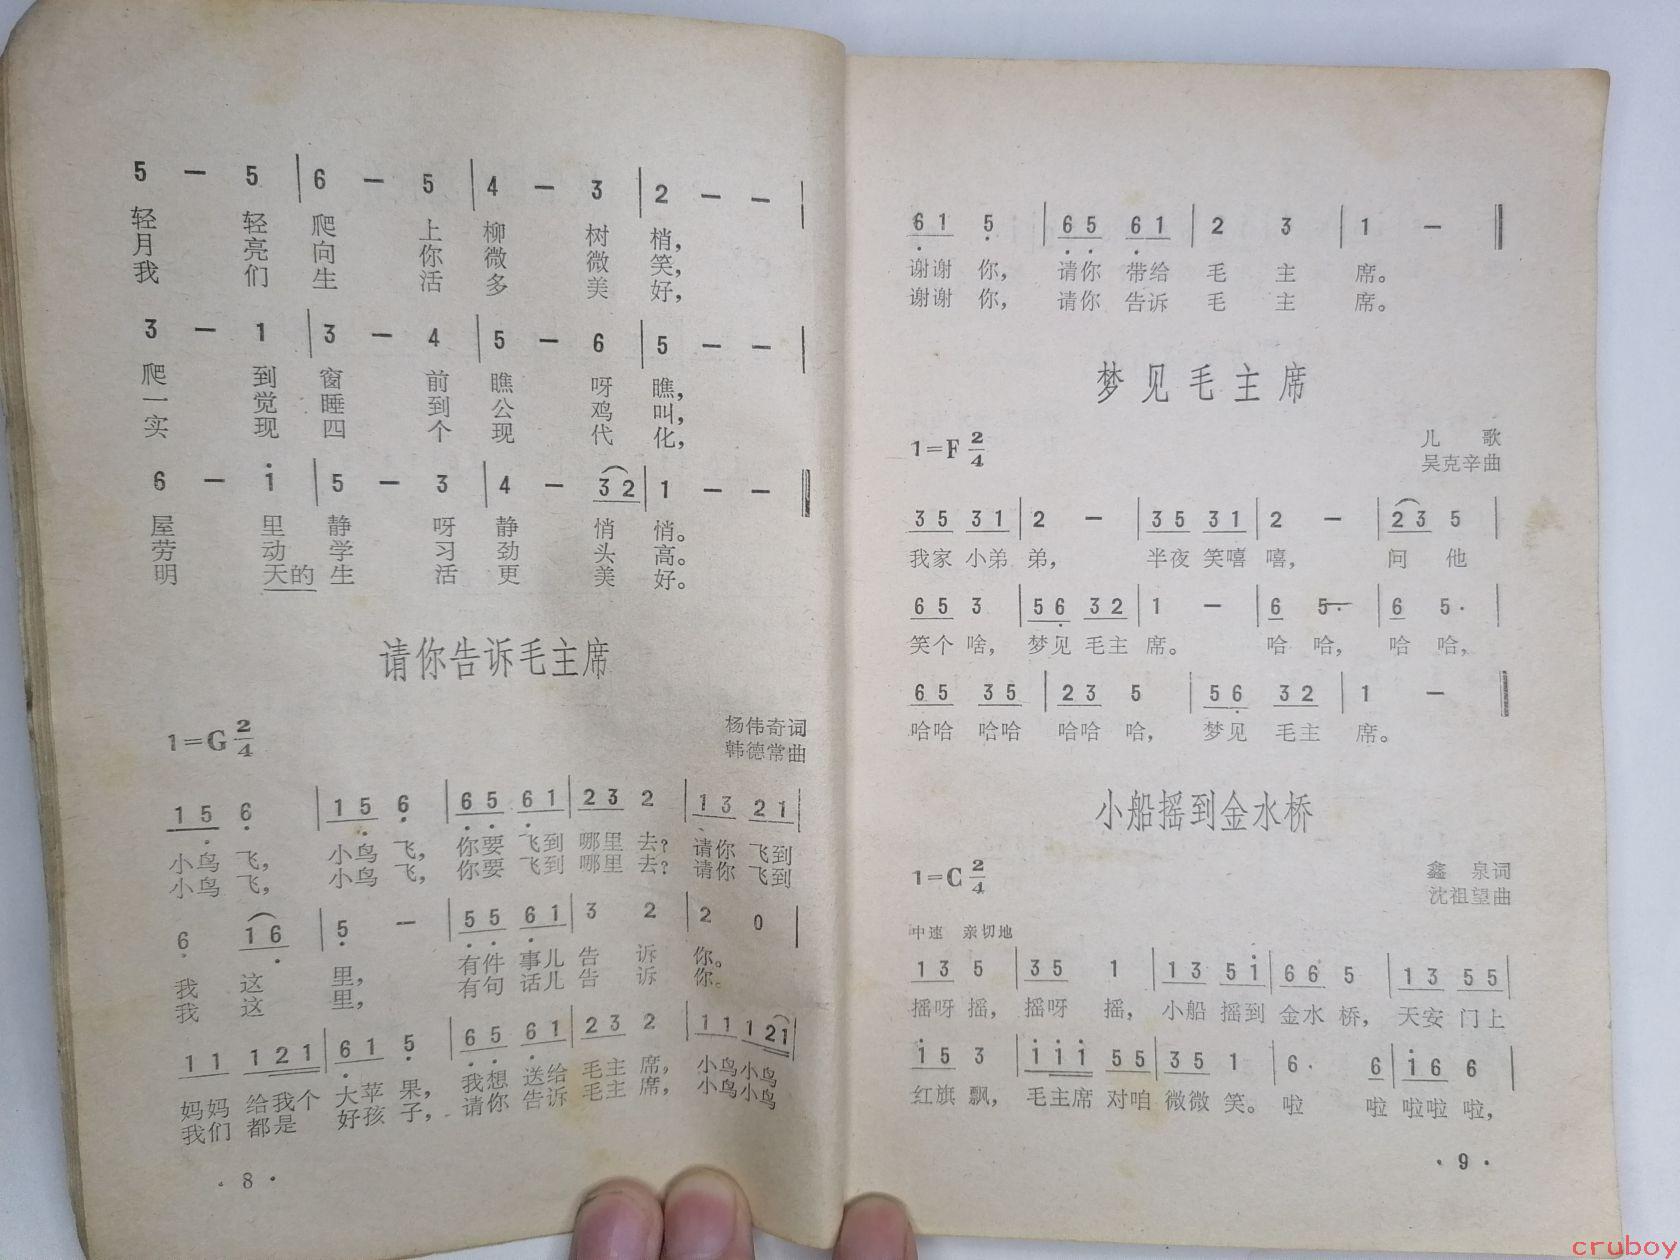 5 — 5 | 6 — 5 | 4 — 3 | 2 — — |
轻 轻 爬 上 柳 树 梢，
月 亮 向 你 微 微 笑，
我 们 生 活 多 美 好，
3 — 1 | 3 — 4 | 5 — 6 | 5 — — |
爬 到 窗 前 瞧 呀 瞧，
一 觉 睡 到 公 鸡 叫，
实 现 四 个 现 代 化，
6 — i | 5 — 3 | 4 — 3 2 | 1 — — ‖
屋 里 静 呀 静 悄 悄。
劳 动 学 习 劲 头 高。
明 天的 生 活 更 美 好。
请你告诉毛主席
1=G 2/4
杨伟奇词
韩德常曲
1 5 6 | 1 5 6 | 6 5 6 1 | 2 3 2 | 1 3 2 1 |
小鸟 飞， 小鸟 飞， 你要 飞到 哪里 去？ 请你 飞到
小鸟 飞， 小鸟 飞， 你要 飞到 哪里 去？ 请你 飞到
6 1 6 | 5 — | 5 5 6 1 | 3 2 | 2 0 |
我 这 里， 有件 事儿 告 诉 你。
我 这 里， 有句 话儿 告 诉 你。
1 1 1 2 1 | 6 1 5 | 6 5 6 1 | 2 3 2 | 1 1 1 2 1 |
妈妈 给我个 大苹 果， 我想 送给 毛主 席， 小鸟小鸟
我们 都是 好孩 子， 请你 告诉 毛主 席， 小鸟小鸟
· 8 ·
6 1 5 | 6 5 6 1 | 2 3 | 1 — ‖
谢谢 你， 请你 带给 毛 主 席。
谢谢 你， 请你 告诉 毛 主 席。
梦见毛主席
1=F 2/4
儿 歌
吴克辛曲
3 5 3 1 | 2 — | 3 5 3 1 | 2 — | 2 3 5 |
我家 小弟 弟， 半夜 笑嘻 嘻， 问 他
6 5 3 | 5 6 3 2 | 1 — | 6 5· | 6 5· |
笑个 啥， 梦见 毛主 席。 哈 哈， 哈 哈，
6 5 3 5 | 2 3 5 | 5 6 3 2 | 1 — ‖
哈哈 哈哈 哈哈 哈， 梦见 毛主 席。
小船摇到金水桥
1=C 2/4
鑫 泉词
沈祖望曲
中速 亲切地
1 3 5 | 3 5 1 | 1 3 5 i | 6 6 5 | 1 3 5 5 |
摇呀 摇， 摇呀 摇， 小船 摇到 金水 桥， 天安 门上
i 5 3 | i i i 5 5 | 3 5 1 | 6· 6 | i 6 6 |
红旗 飘， 毛主席 对咱 微微 笑。 啦 啦 啦啦 啦，
· 9 ·
cruboy